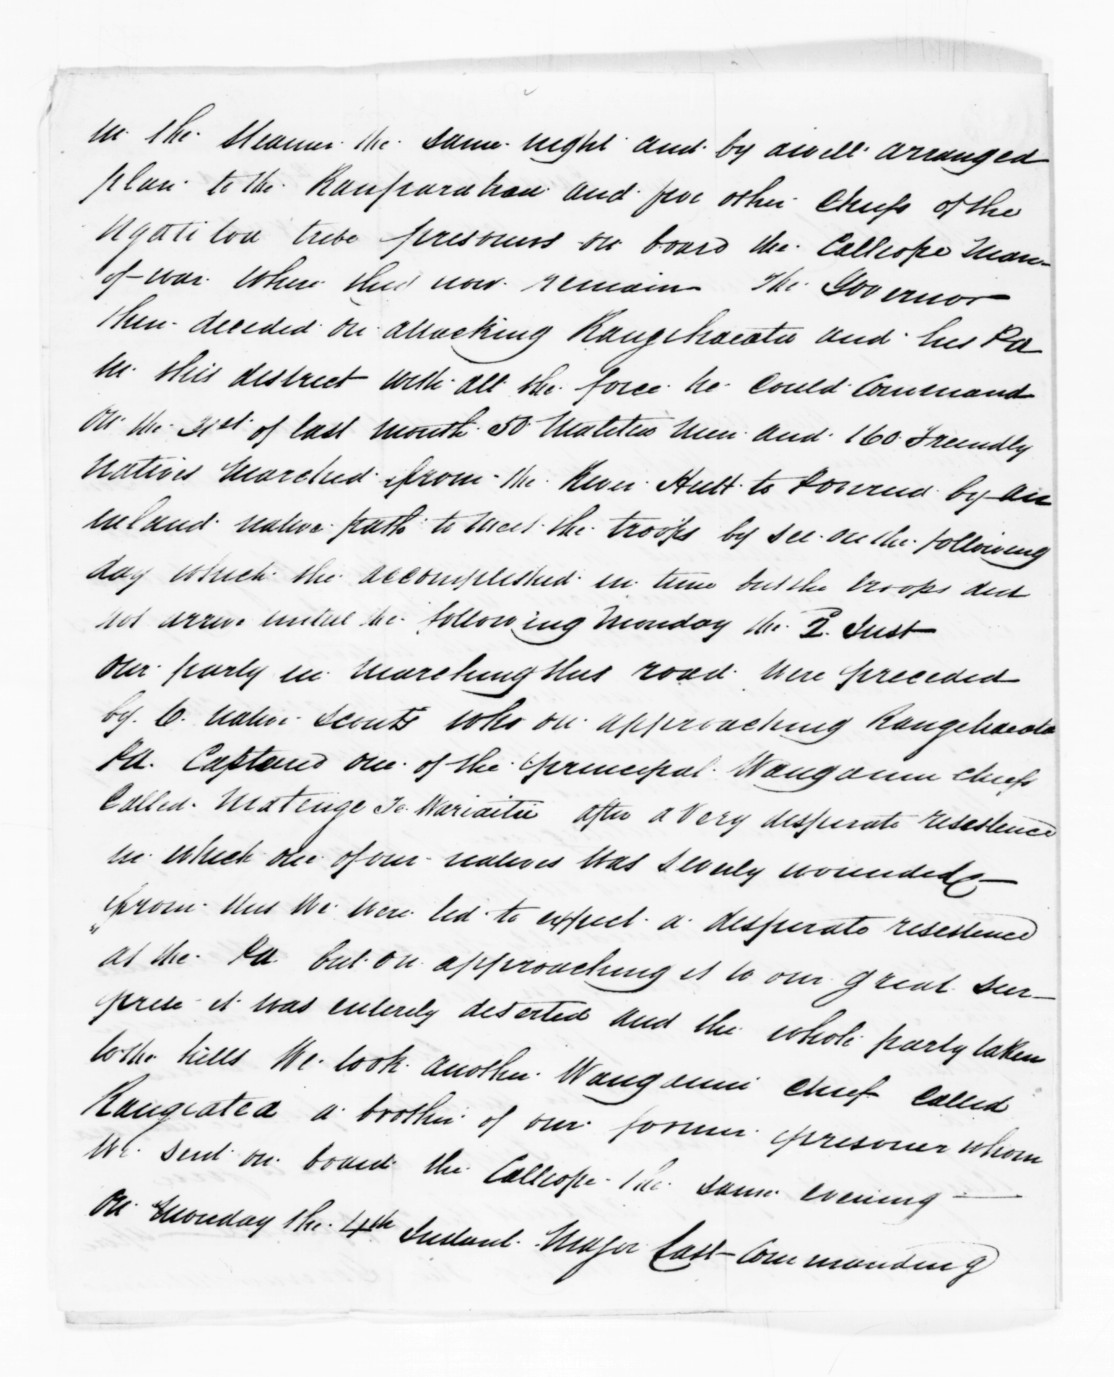 in the Steamer the same night and by a well arranged
plan to the Rauparahau and five other Chiefs of the
Ngatitoa tribe presoners on board the Calliope Man-
of-war where they now remain The Governor
then decided on attacking Rangihaeata and his Pa
in this destrect with all the force he could Command
On the 31st of last month 50 Malitia Men and 160 Freendly
Natives Marched from the River Hutt to Porerua by an
inland native path to Meet the troops by see on the following
day which the accomplished in time but the troops did
not arrive untill the following Monday the 2 Inst
Our party in Marching this road were preceded
by 6 native Scouts who on approaching Rangehaeata
Pa. Captured one of the principal Wanganui Chiefs
Called Matenge Te Wariaitu after a Very desperate resestence
in which one of our natives was severly wounded
from this We were led to expect a desperate resestence
at the Pa but on approaching it to our great Sur-
prise it was enterely deserted and the whole party taken
to the hills We took another Wanganui Chief Called
Rangeatea a brother of our former presoner whom
We sent on board the Calliope the same evening
On Monday the 4th Instant Major Last Commanding